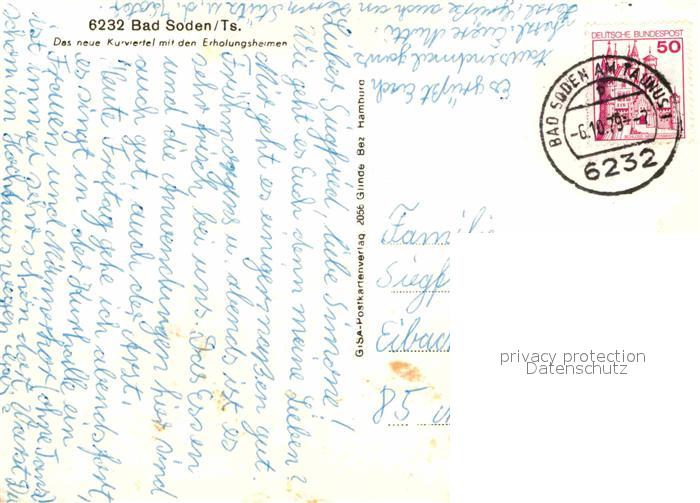 6232 Bad Soden/Ts.
Das neue Kurviertel mit den Erholungsheimen
Lieber Siegfried, liebe Simone!
Wie geht es Euch denn meine Lieben?
Mir geht es einigermassen gut.
Frühmorgens u. abends ist es
frisch bei uns. Das Essen
und die Anwendungen hier sind
auch gut, auch der Arzt.
Heute Freitag gehe ich abends fort
es singt in der Kurhalle ein
Frauen und Männerchor (ohne Tanz)
ist immer
schon im Kochhaus
es grüßt Euch
tausendmal ganz
herzl. Eure Mutti
GISA-Postkartenverlag 2056 Glinde Bez Hamburg
DEUTSCHE BUNDESPOST
50
BAD SODEN AM TAUNUS 1
-6.10.79
6232
Famil
Siegf
Eibac
85
privacy protection
Datenschutz